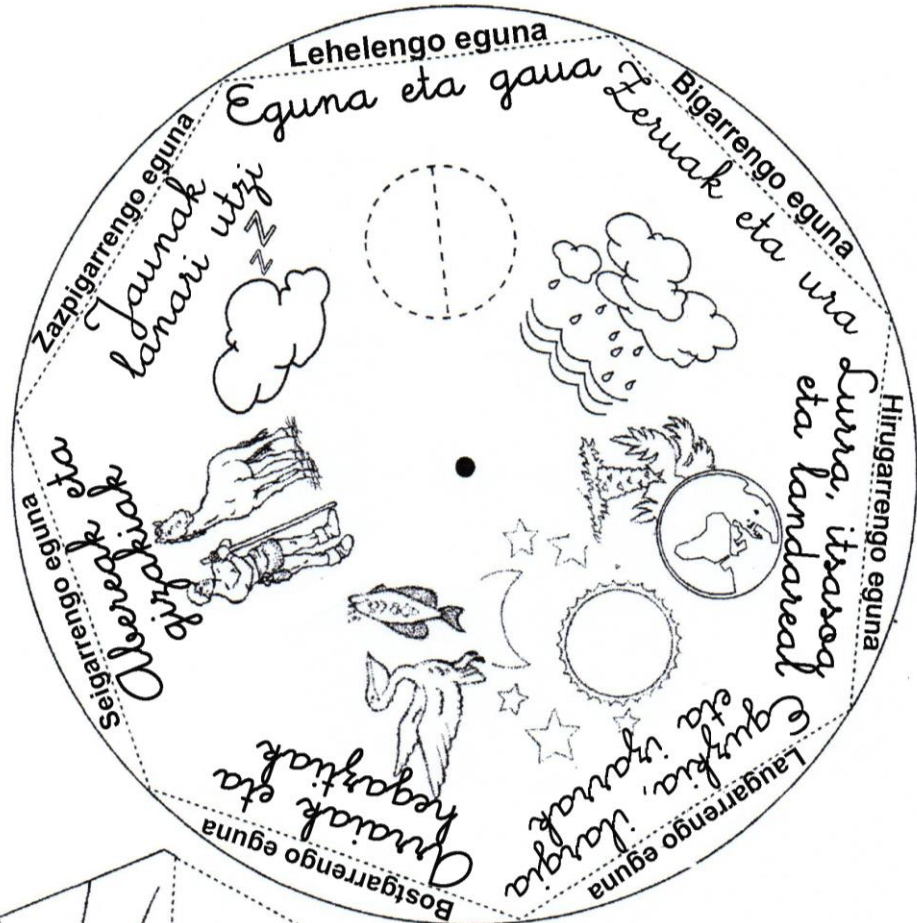 Lehelengo eguna
Eguna eta gaua
Bigarrengo eguna
Zeruak eta ura
Hirugarrengo eguna
Lurra, itsasoa
eta landareak
Laugarrengo eguna
Eguzkia, ilargia
eta izarrak
Bostgarrengo eguna
Arraiak eta
hegaztiak
Seigarrengo eguna
Abereak eta
gizakiak
Zazpigarrengo eguna
Jaunak
lanari utzi
Z
Z